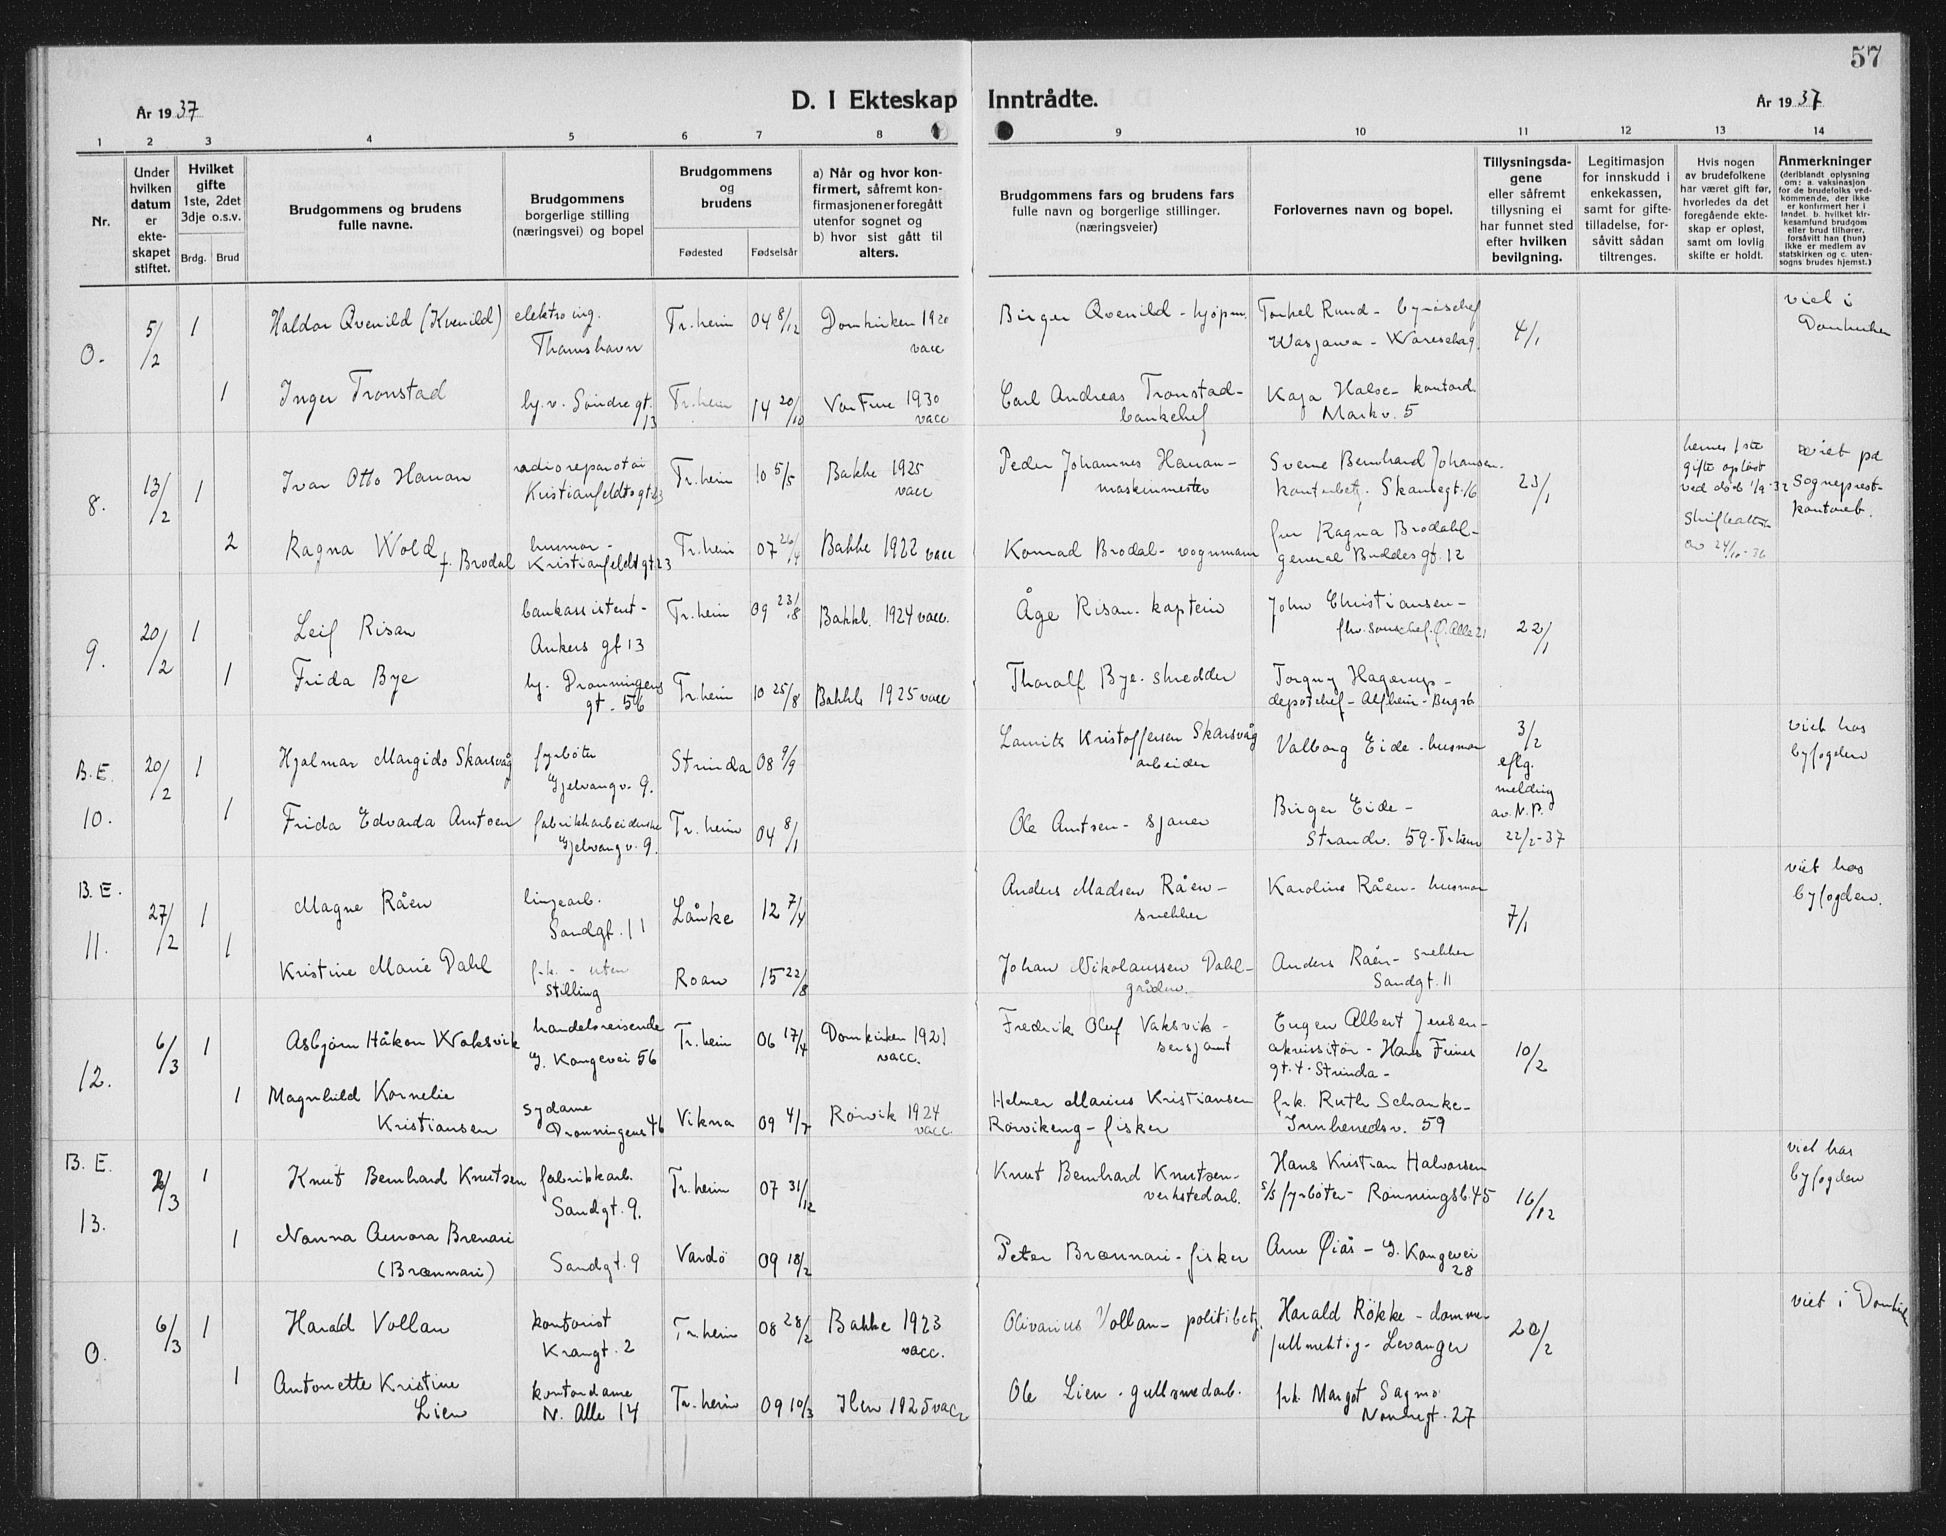 57
D. I Ekteskap Inntrådte.
År 1937
År 1937
1 2 3 4 5 6 7 8 9 10 11 12 13 14
Nr.
Under hvilken datum er ekteskapet stiftet.
Hvilket gifte 1ste, 2det 3dje o.s.v.
Brdg. Brud
Brudgommens og brudens fulle navne.
Brudgommens borgerlige stilling (næringsvei) og bopel
Brudgommens og brudens
Fødested Fødselsår
a) Når og hvor konfirmert, såfremt konfirmasjonen er foregått utenfor sognet og b) hvor sist gått til alters.
Brudgommens fars og brudens fars fulle navn og borgerlige stillinger. (næringsveier)
Forlovernes navn og bopel.
Tillysningsdagene eller såfremt tillysning ei har funnet sted efter hvilken bevilgning.
Legitimasjon for innskudd i enkekassen, samt for giftetilladelse, forsåvitt sådan tiltrenges.
Hvis nogen av brudefolkene har været gift før, hvorledes da det foregående ekteskap er opløst, samt om lovlig skifte er holdt.
Anmerkninger (deriblandt oplysning om: a. vaksinasjon for de brudefolks vedkommende, der ikke er konfirmert her i landet. b. hvilket kirkesamfund brudgom eller brud tilhører, forsåvitt han (hun) ikke er medlem av statskirken og c. utensogns brudes hjemst.)
O. 5/2 1 Haldor Qvenild (Kvenild) elektroing. Thamshavn Tr.heim 04 8/12 Domkirken 1920 vacc Birger Qvenild - kjøpm. 4/1 viet i Domkirken
1 Inger Tronstad hj.v. Søndregt. 13 Tr.heim 14 20/10 Vor Frue 1930 vacc Carl Andreas Tronstad - banksjef Kaja Halse - kontord. Markv. 5
8. 13/2 1 Ivar Otto Hanan radioreparatør Kristianfeldtsgt 23 Tr.heim 10 5/5 Bakke 1925 vacc Peder Johannes Hanan - maskinmester Sverre Bernhard Johansen. kontorbetj. Skansegt. 16 23/1 hennes 1ste gifte opløst ved død 1/9-32 viet på Sogneprestkontoret.
2 Ragna Wold f. Brodal husmor - Kristianfeldtsgt 23 Tr.heim 07 26/4 Bakke 1922 vacc Konrad Brodal - vognmann fru Ragna Brodahl - general Buddesgt. 12 Skifteattest av 24/10-36
9. 20/2 1 Leif Risan bankassistent - Ankers gt 13 Tr.heim 09 23/8 Bakke. 1924 vacc. Åge Risan. kaptein John Christiansen - 22/1
1 Frida Bye hj. Dronningens gt. 56 Tr.heim 10 25/8 Bakke 1925 vacc Thoralf Bye - skredder Torguy Hagerup - depotchef - Alfheim - Bergsb.
B.E. 10. 20/2 1 Hjalmar Margido Skarsvåg fyrbøter Gjelvangv. 9. Strinda 08 9/9 Laurits Kristoffersen Skarsvåg arbeider Valborg Eide - husmor 3/2 eflg. melding av. N.P. 22/2-37 viet hos byfogden
1 Frida Edvarda Arntsen fabrikkarbeiderske Gjelvangv. 9. Tr.heim 04 8/1 Ole Arntsen - sjauer Birger Eide - Strandv. 59 - Tr.heim
B.E. 11. 27/2 1 Magne Råen linjearb. Sandgt. 11 Lånke 12 7/4 Anders Madsen Råen - snekker Karoline Råen - husmor 7/1 viet hos byfogden.
1 Kristine Marie Dahl frk. - uten stilling Roan 15 22/8 Johan Nikolaussen Dahl - gårdbr. Anders Råen - snekker Sandgt. 11
12. 6/3 1 Asbjørn Håkon Waksvik handelsreisende G. Kongevei 56 Tr.heim 06 17/4 Domkirken 1921 vacc. Fredrik Oluf Vaksvik - sersjant Eugen Albert Jensen - akvisitør - Hans Finnes gt. 4 - Strinda - 10/2
1 Magnhild Kornelie Kristiansen sydame Dronningens 46 Vikna 09 4/7 Rørvik 1924 vacc. Helmer Marius Kristiansen Rørvikeng - fisker frk. Ruth Schanke - Innherredsv. 59
B.E. 13. 2/3 1 Knut Bernhard Knutsen fabrikkarb. Sandgt. 9. Tr.heim 07 31/12 Knut Bernhard Knutsen - verkstedarb. Hans Kristian Halvorsen s/s fyrbøter - Rønningsb. 45 16/12 viet hos byfogden
1 Nanna Aurora Brenari (Brænnari) Sandgt. 9 Vardö 09 18/2 Peter Brænnari - fisker Arne Øiås - G. Kongevei 28
O. 6/3 1 Harald Vollan kontorist Krangt. 2 Tr.heim 08 28/2 Bakke 1923 vacc. Olivarius Vollan - politibetj. Harald Røkke - dommerfullmektig - Levanger 20/2 viet i Domkir
1 Antonette Kristine Lien kontordame N. Alle 14 Tr.heim 09 10/3 Ilen 1925 vacc Ole Lien - gullsmedarb. frk. Margot Sagmo Nordregt. 27